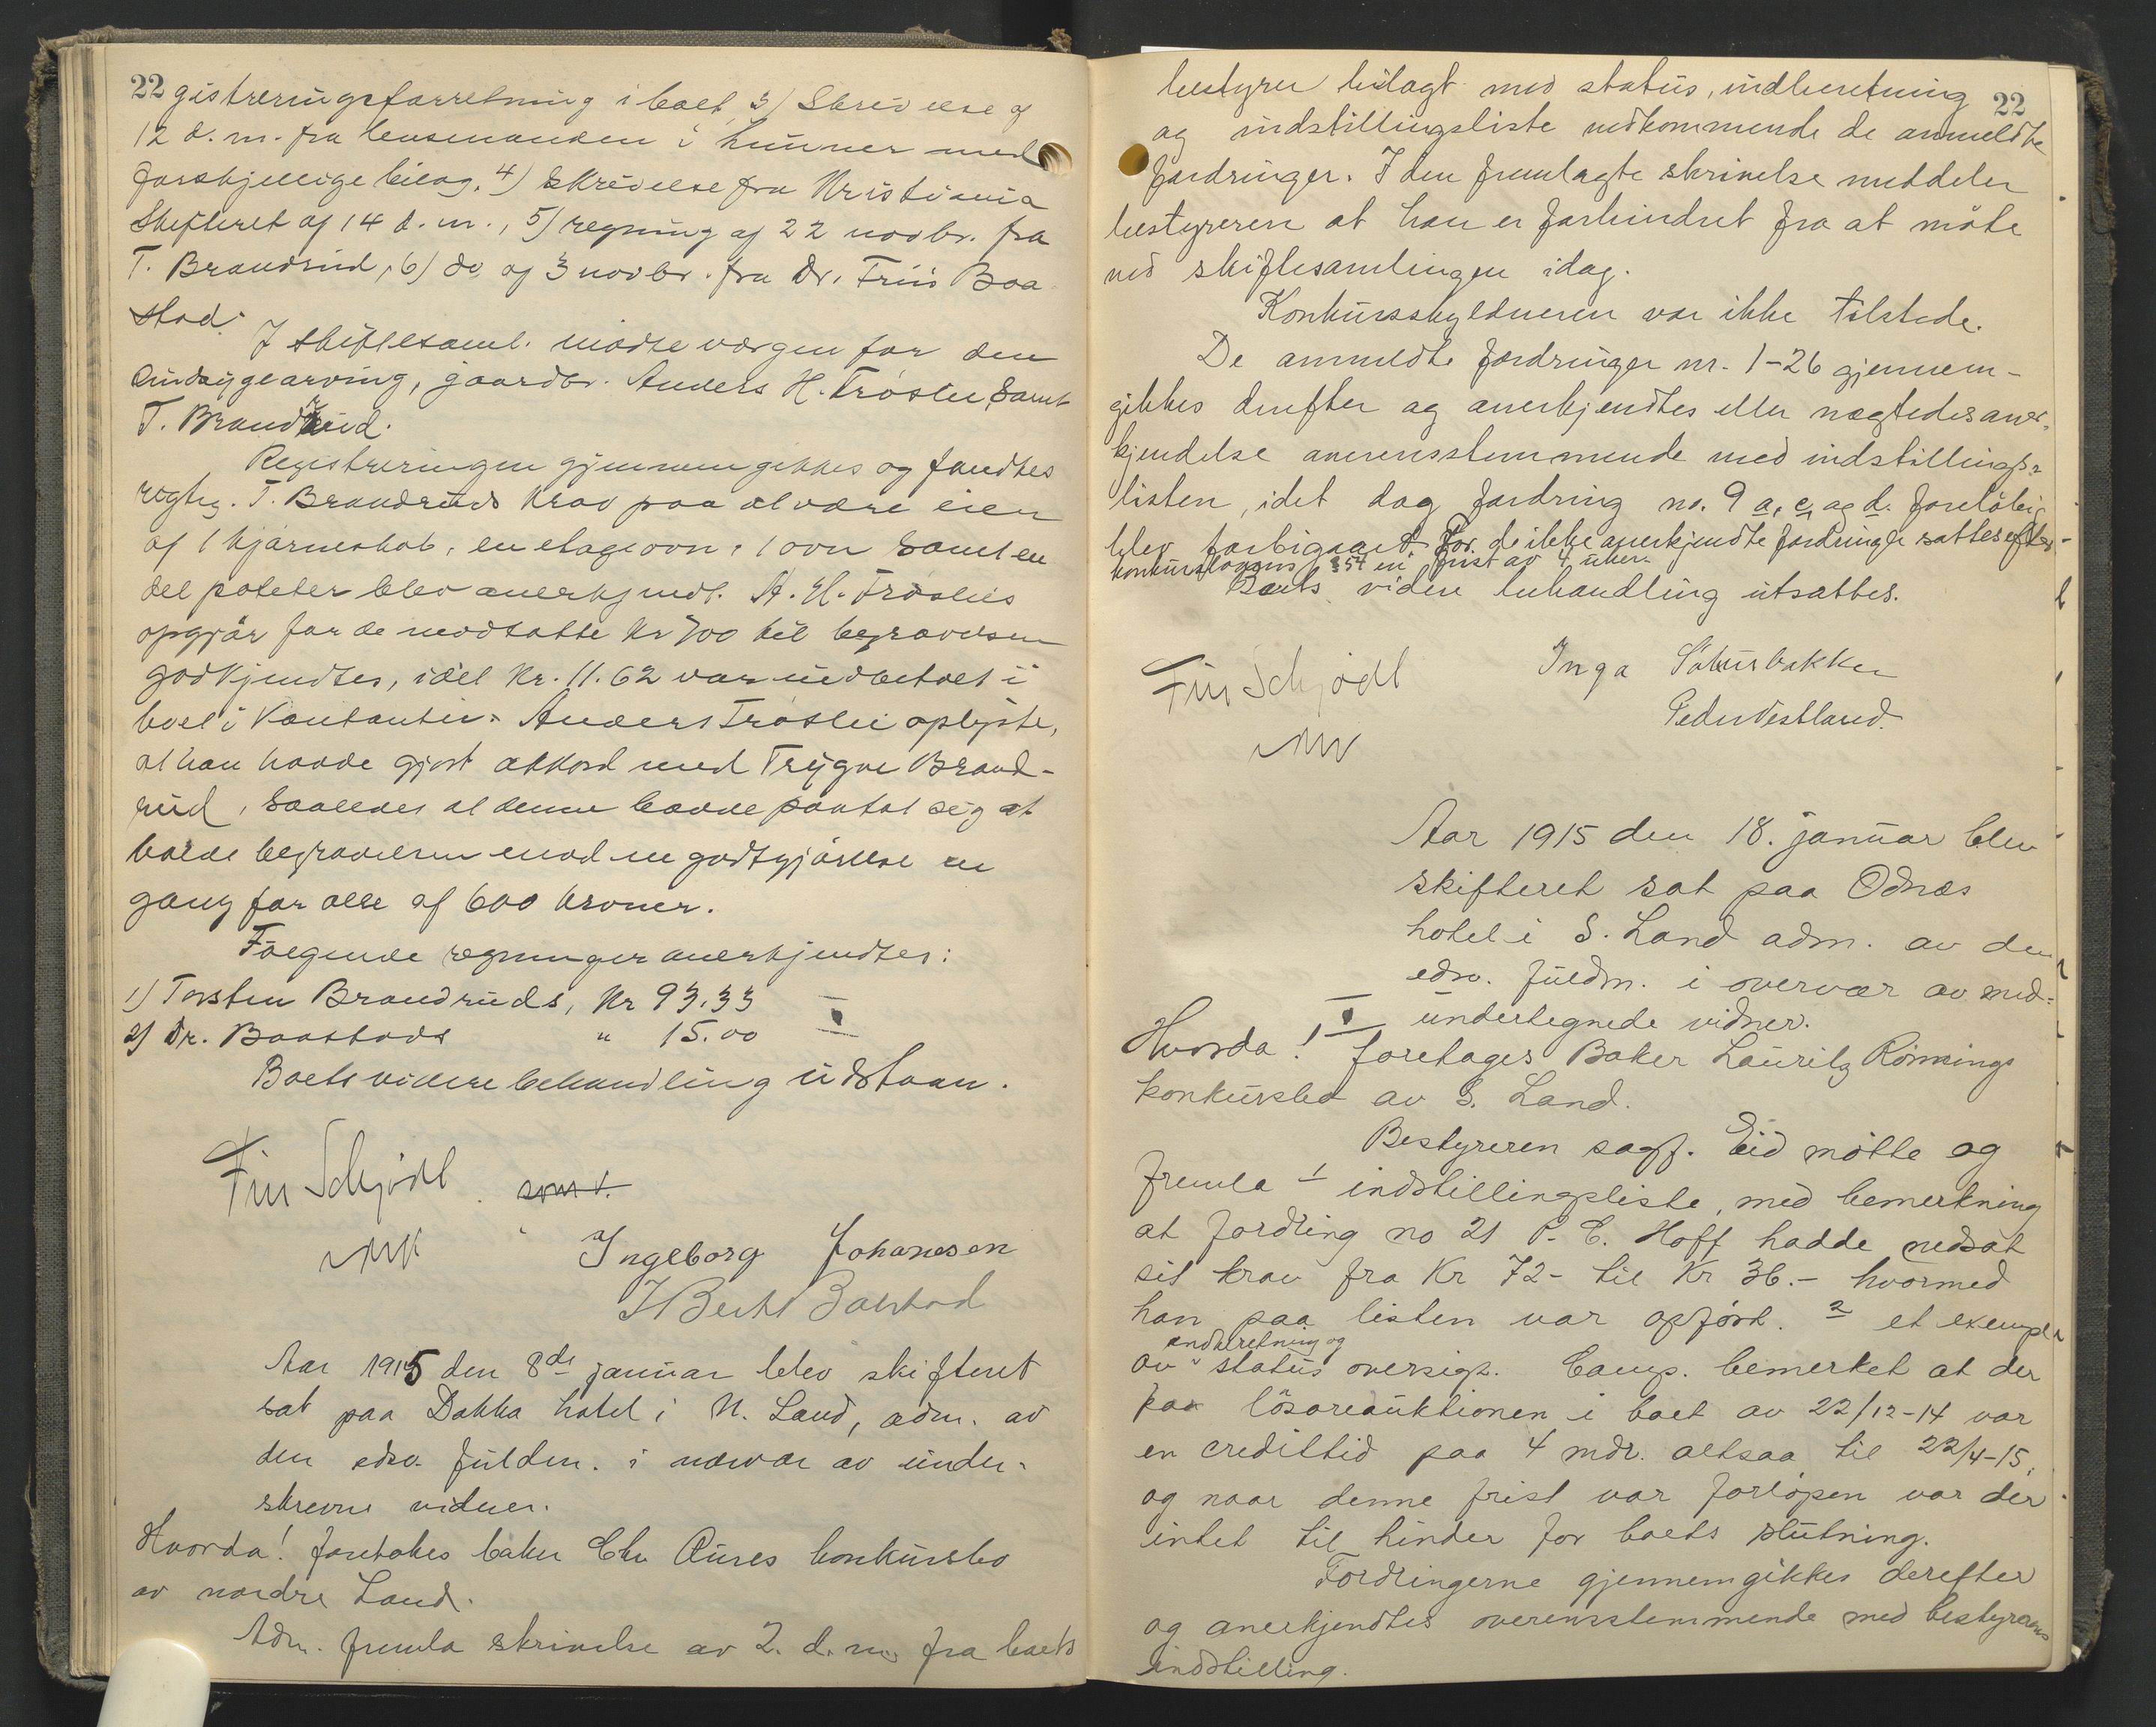 22
gistreringsforretning i boet, 3) Skrivelse af
12 d. m. fra lensmanden i Lunner med
forskjellige bilag, 4) skrivelse fra Kristiania
Skifteret af 14 d. m., 5) regning af 22 novbr. fra
T. Brandrud, 6) do af 3 novbr. fra Dr. Friis Baa
stad.
I skiftesaml. mødte værgen for den
myndige arving, gaardbr. Anders H. Trøslei, samt
T. Brandrud.
Registreringen gjennemgikkes og fandtes
rigtig. T. Brandruds krav paa at være eier
af 1 hjørneskab, en etageovn, 1 ovn samt en
del poteter blev anerkjendt. A. H. Trøsleis
opgjør for de modtatte kr 700 til begravelsen
godkjendtes, idet kr. 11.62 var indbetalt i
boet i kontanter. Anders Trøslei oplyste,
at han havde gjort akkord med Trygve Brand-
rud, saaledes at denne havde paatat sig at
holde begravelsen mod en godtgjørelse en
gang for alle af 600 kroner.
Følgende regninger anerkjendtes:
1) Torsten Brandruds, Kr 93.33
2) Dr. Baastads " 15.00
Boets videre behandling udstaar.
Fin Schjødt som v.
Ingeborg Johannesen
Aar 1915 den 8de januar blev skifteret
sat paa Dokka hotel i N. Land, adm. av
den edsv. fuldm. i nærvær av under-
skrevne vidner.
Hvorda! foretokes baker Chr Aures konkursbo
av nordre Land.
Adm. fremla skrivelse av 2. d. m. fra boets
22
bestyrer bilagt med status, indberetning
og indstillingsliste vedkommende de anmeldte
fordringer. I den fremlagte skrivelse meddeler
bestyreren at han er forhindret fra at møte
ved skiftesamlingen idag.
Konkursskyldneren var ikke tilstede.
De anmeldte fordringer nr. 1-26 gjennem-
gikkes derefter og anerkjendtes eller nægtedes aner-
kjendelse overensstemmende med indstillings-
listen, idet dog fordring no. 9 a, c, og d. foreløbig
blev forbigaaet. For de ikke anerkjendte fordringer sattes efter
konkurslovens § 54 en frist av 4 uker.
Boets videre behandling utsattes.
Fin Schjødt Inga Sæbusbakken
Peder Vestland.
Aar 1915 den 18. januar blev
skifteret sat paa Odnæs
hotel i S. Land adm. av den
edsv. fuldm. i overvær av med-
undertegnede vidner.
Hvorda! foretages Baker Lauritz Rønnings
konkursbo av S. Land.
Bestyreren sagf. Eid møtte og
fremla 1 indstillingsliste, med bemerkning
at fordring no 21 P. C. Hoff hadde nedsat
sit krav fra Kr 72- til Kr 36.- hvormed
han paa listen var opført. 2 et exempl
indberetning og
av status oversigt. Comp. bemerket at der
paa løsøreauktionen i boet av 22/12-14 var
en credittid paa 4 mdr. altsaa til 22/4-15,
og naar denne frist var forløpen var der
intet til hinder for boets slutning.
Fordringerne gjennemgikkes derefter
og anerkjendtes overensstemmende med bestyrerens
indstilling.